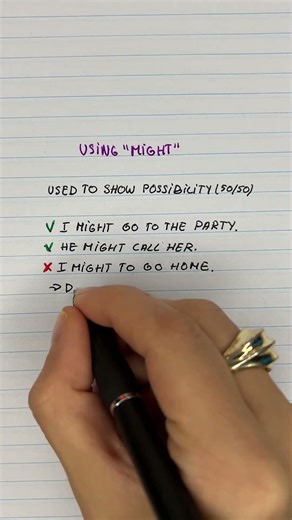 USING "MIGHT"
USED TO SHOW POSSIBILITY (50/50)
✓ I MIGHT GO TO THE PARTY.
✓ HE MIGHT CALL HER.
✗ I MIGHT TO GO HOME.
→ D